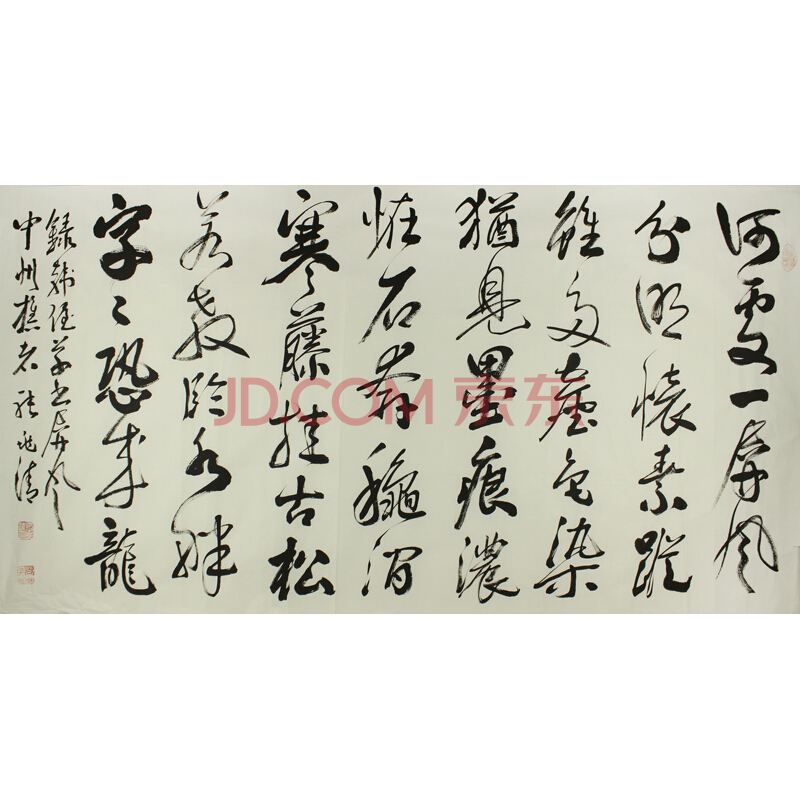 何處一屏風
分明懷素蹤
雖多塵色染
猶見墨痕濃
恠石奔穐澗
寒藤挂古松
若教臨水畔
字々恐成龍
錄韓偓草書屏風
中州樵者張兆清
JD.COM 京东